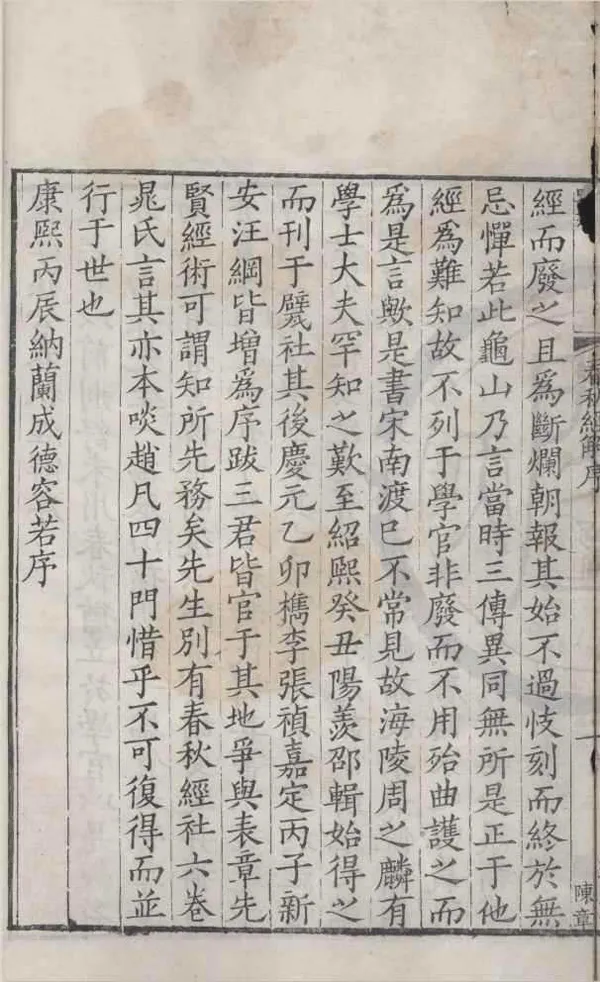 春秋經解序
陳章
經而廢之且爲斷爛朝報其始不過忮刻而終於無
忌憚若此龜山乃言當時三傳異同無所是正于他
經爲難知故不列于學官非廢而不用殆曲護之而
爲是言歟是書宋南渡已不常見故海陵周之麟有
學士大夫罕知之歎至紹熙癸丑陽羨邵輯始得之
而刊于甓社其後慶元乙卯檇李張禎嘉定丙子新
安汪綱皆增爲序跋三君皆官于其地爭與表章先
賢經術可謂知所先務矣先生別有春秋經社六卷
晁氏言其亦本啖趙凡四十門惜乎不可復得而並
行于世也
康熙丙辰納蘭成德容若序